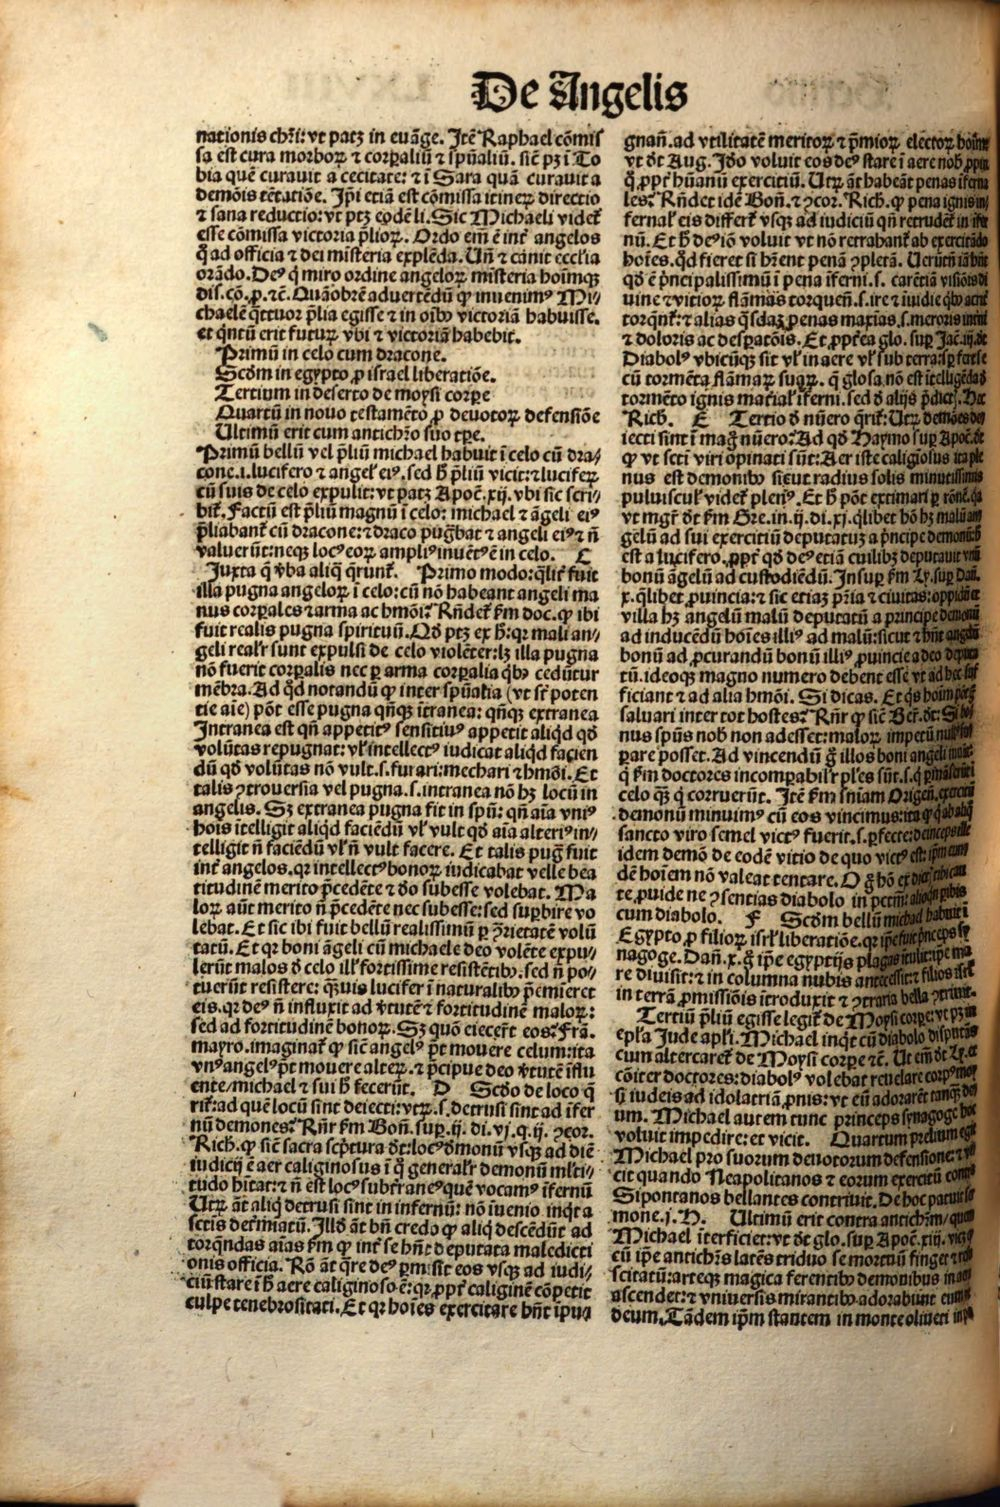 De Angelis
nationis chri: vt patz in euãge. Itẽ Raphael cõmis
sa est cura morboꝝ ⁊ corpaliũ ⁊ spũaliũ. sic̃ pꝫ ĩ To
bia quẽ curauit a cecitate: ⁊ ĩ Sara quã curauit a
demõis tẽtatiõe. Ip̃i etiã est cõmissa itineꝝ directio
⁊ sana reductio: vt ptꝫ eodẽ li. Sic Michaeli videt̃
esse cõmissa victoria p̃lioꝝ. Ordo em̃ ẽ int̃ angelos
q̃ ad officia ⁊ dei misteria explẽda. Vñ ⁊ canit eccl̃ia
orãdo. Deꝰ q̃ miro ordine angeloꝝ mĩsteria hoĩmqꝫ
dis. cõ. ꝓ. ⁊c̃. Quãobrẽ aduertẽdũ ꝙ inuenimꝰ Mi⸗
chaelẽ q̃ttuor p̃lia egisse ⁊ in oĩbꝰ victoriã habuisse.
et q̃ntũ erit futuꝝ vbi ⁊ victoriã habebit.
Primũ in celo cum dracone.
Scd̃m in egypto ꝓ israel liberatiõe.
Tertium in deserto de moysi corpe
Quartũ in nouo testamẽto ꝓ deuotoꝝ defensiõe
Ultimũ erit cum antichr̃o suo tp̃e.
Primũ bellũ vel p̃liũ michael habuit ĩ celo cũ dra⸗
cone .i. lucifero ⁊ angel̃ eiꝰ. sed h̃ p̃liũ vicit: ⁊ luciferꝫ
cũ suis de celo expulit: vt patꝫ Apoc̃. xij. vbi sic scri⸗
bit̃. Factũ est p̃liũ magnũ ĩ celo: michael ⁊ ãgeli eiꝰ
p̃liabant̃ cũ dracone: ⁊ draco pug̃bat ⁊ angeli eiꝰ ⁊ ñ
valuerũt: neqꝫ locꝰ eoꝝ ampliꝰ inuẽtꝰ ẽ in celo. C
Juxta q̃ v̾ba aliq̃ q̃runt̃. Primo modo: q̃lit̃ fuit
illa pugna angeloꝝ ĩ celo: cũ nõ habeant angeli ma
nus corpales ⁊ arma ac hmõi? Rñdet̃ f̃m doc. ꝙ ibi
fuit realis pugna spirituũ. Qd̾ ptꝫ ex h̃: qꝛ mali an⸗
geli real̃r sunt expulsi de celo violẽter: lꝫ illa pugna
nõ fuerit corpalis nec ꝑ arma corpalia q̃bꝰ cedũtur
mẽbra. Ad q̃d notandũ ꝙ inter spũalia (vt sr̃ poten
tie aĩe) põt esse pugna qñqꝫ ĩtranea: qñqꝫ extranea
Intranea est qñ appetitꝰ sensitiuꝰ appetit aliq̃d qd̾
volũtas repugnat: vl̃ intellectꝰ iudicat aliq̃d facien
dũ qd̾ volũtas nõ vult. s. furari: mechari ⁊ hmõi. Et
talis ↄtrouersia vel pugna. s. intranea nõ hꝫ locũ in
angelis. Sꝫ extranea pugna fit in spũ: qñ aĩa vniꝰ
hoĩs ĩtelligit aliq̃d faciẽdũ vl̃ vult qd̾ aĩa alteriꝰ in⸗
telligit ñ faciẽdũ vl̃ ñ vult facere. Et talis pug̃ fuit
int̃ angelos. qꝛ intellectꝰ bonoꝝ iudicabat velle bea
titudinẽ merito p̃cedẽte ⁊ d̾o subesse volebat. Ma
loꝝ aũt merito ñ p̃cedẽte nec subesse: sed supbire vo
lebat. Et sic ibi fuit bellũ realissimũ ꝑ ↄ̃rietatẽ volũ
tatũ. Et qꝛ boni ãgeli cũ michaele deo volẽte expu⸗
lerũt malos d̾ celo ill̃ fortissime resistẽtibꝰ. sed ñ po⸗
tuerũt resistere: q̃uis lucifer ĩ naturalibꝰ p̃emĩeret
eis. qꝛ deꝰ ñ influxit ad v̾tutẽ ⁊ fortitudinẽ maloꝝ:
sed ad fortitudinẽ bonoꝝ. Sꝫ quõ eiecer̃t eos? Frã.
mayro. imaginat̃ ꝙ sic̃ angelꝰ p̃t mouere celum: ita
vnꝰ angelꝰ p̃t mouere alteꝝ. ⁊ p̃cipue deo v̾tutẽ ĩflu
ente / michael ⁊ sui h̃ fecerũt. D Scd̾o de loco q̃
rit̃: ad quẽ locũ sint deiecti: vtꝝ. s. detrusi sint ad ĩfer
nũ demones? Rñr f̃m Bon̾. sup. ij. di. vj. q. ij. ⁊ cor.
Rich. ꝙ sic̃ sacra sc̃ptura d̾t: locꝰ d̾monũ vsqꝫ ad diẽ
iudicij ẽ aer caliginosus ĩ q̃ general̃r demonũ ml̃ti⸗
tudo hĩtat: ⁊ ñ est locꝰ subt̃raneꝰ quẽ vocamꝰ ĩfernũ
Utꝝ ãt aliq̃ detrusi sint in infernũ: nõ iuenio inq̃t a
sctĩs det̃miatũ. Illd̾ ãt bñ credo ꝙ aliq̃ descẽdũt ad
torq̃ndas aĩas f̃m ꝙ int̃ se hñt deputata maledicti
onis officia. Rõ ãt q̃re deꝰ pm̃isit eos vsqꝫ ad iudi⸗
ciũ stare ĩ h̃ aere caliginoso ẽ: qꝛ ꝓpt̃ caliginẽ cõpetit
culpe tenebrositati. Et qꝛ hoĩes exercitare hñt ĩpug
gnañ. ad vtilitatẽ meritoꝝ ⁊ p̃mioꝝ electoꝝ
vt d̾t Aug. Id̾o voluit eos deꝰ stare ĩ aere nob̃
q̃ ꝓpt̃ hũanũ exercitiũ. Utꝝ ãt habeãt penas ĩferna
les? Rñdet idẽ Bon̾. ⁊ ↄcor. Rich. ꝙ pena ignis in⸗
fernal̃ eis differt̃ vsqꝫ ad iudiciũ qñ retrudẽt̃ in ĩfer
nũ. Et h̃ deꝰ iõ voluit vt nõ retrahant̃ ab exercitãdo
hoĩes. qd̾ fieret si hr̃ent penã ↄpletã. Uerũtñ iã hñt
qd̾ ẽ p̃ncipalissimũ ĩ pena ĩferni. s. carẽtiã visiõis di
uine ⁊ vitioꝝ flãmas torquen̾. s. ire ⁊ iuidie q̃bꝰ acrit̃
torq̃nt̃: ⁊ alias q̃sdaꝫ penas maxĩas. s. meroris
⁊ doloris ac despatõis. Et ꝓpt̃ea glo. sup Jac̃. iij. d̾t
Diabolꝰ vbicũqꝫ sit vl̃ in aere vl̃ sub terra: sp̃ fert se
cũ tormẽta flãmaꝝ suaꝝ. q̃ glosa nõ est ĩtelligẽda d̾
tormẽto ignis mat̃ial̃ ĩferni. sed d̾ alijs p̃dict̃. Hec
Rich. E Tertio d̾ nũero q̃rit̃: Utꝝ demões de
iecti sint ĩ mag̃ nũero? Ad qd̾ Haymo sup Apoc̃. d̾t
ꝙ vt scti viri opinati sũt: Aer iste caligĩosus ita ple
nus est demonibꝰ sicut radius solis minutissimis
puluiscul̃ videt̃ plenꝰ. Et h̃ põt extimari ꝑ rõnẽ. qꝛ
vt mgr̃ d̾t f̃m Gre. in. ij. di. xj. q̃libet hõ hꝫ malũ an
gelũ ad sui exercitiũ deputatuꝫ a p̃ncipe demonũ: h̃
est a lucifero. ꝓpt̃ qd̾ deꝰ etiã cuilibꝫ deputauit vnũ
bonũ ãgelũ ad custodiẽdũ. Insup f̃m Ly. sup Dañ.
x. q̃libet ꝓuincia: ⁊ sic etiaꝫ p̃ria ⁊ ciuitas: oppidũ et
villa hꝫ angelũ malũ deputatũ a principe demonũ
ad inducẽdũ hoĩes illiꝰ ad malũ: sicut ⁊ hñt angelũ
bonũ ad ꝓcurandũ bonũ illiꝰ ꝓuincie a deo deputa
tũ. ideoqꝫ magno numero debent esse vt ad hec suf
ficiant ⁊ ad alia hmõi. Si dicas. Et q̃s hoĩm
saluari inter tot hostes? Rñr ꝙ sic̃ Ber̃. d̾t: Si bo⸗
nus spũs nob̃ non adesset: maloꝝ impetũ nullꝰ suf
parare posset. Ad vincendũ g̃ illos boni angeli
q̃ f̃m doctores incompabil̃r pl̃es sũt. s. q̃
celo qꝫ q̃ corruerũt. Itẽ f̃m sniam Origeñ. exercitũ
demonũ minuimꝰ cũ eos vincimus: ita ꝙ q̃
sancto viro semel victꝰ fuerit. s. pfecte: deinceps ille
idem demõ de eodẽ vitio de quo victꝰ est: ip̃m
dẽ hoĩem nõ valeat tentare. O g̃ hõ
te, ꝓuide ne ↄsentias diabolo in
cum diabolo. F Scd̾m bellũ michael habuit ĩ
Egypto ꝓ filioꝝ isrl̃ liberatiõe. qꝛ ip̃e fuit p̃nceps sy
nagoge. Dañ. x. g̃ ip̃e egyptijs plagas intulit: ip̃e ma
re diuisit: ⁊ in columna nubis antecessit: ⁊ filios isrl̃
in terrã ꝓmissiõis ĩtroduxit ⁊ ↄtraria bella ↄtriuit.
Tertiũ p̃liũ egisse legit̃ de Moysi corpe: vt pꝫ in
epl̃a Jude apl̃i. Michael inq̃t cũ diabolo disputãs
cum altercaret̃ de Moysi corpe ⁊c̃. Ut em̃ d̾t Ly. et
cõiter doctores: diabolꝰ volebat reuelare corpꝰ moy
si iudeis ad idolatriã ꝓnis: vt eũ adorarẽt tanqꝫ de
um. Michael autem tunc princeps synagoge hoc
voluit impedire: et vicit. Quartum prelium egit
Michael pro suorum deuotorum defensione: ⁊ vi
cit quando Neapolitanos ⁊ eorum exercitũ contra
Sipontanos bellantes contriuit. De hoc patuit ser
mone. j. H. Ultimũ erit contra antichr̃m / quem
Michael ĩterficiet: vt d̾t glo. sup Apoc̃. xiij.
cũ ip̃e antichrs latẽs triduo se mortuũ finget ⁊
scitatũ: arteqꝫ magica ferentibꝰ demonibus in aera
ascendet: ⁊ vniuersis mirantibꝰ adorabunt eum vt
deum. Tãdem ip̃m stantem in monte oliueti